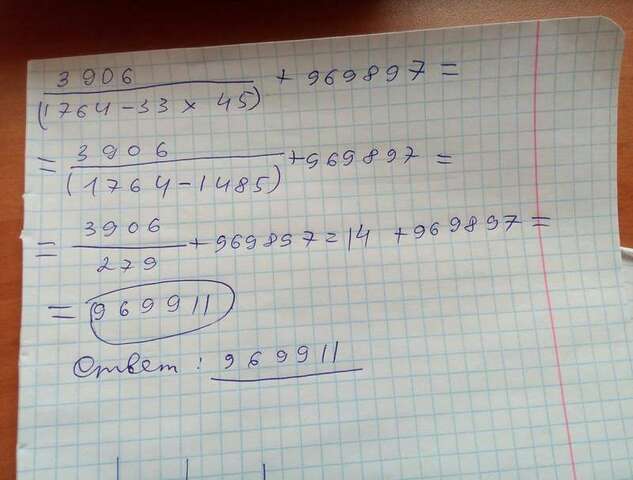 3906
(1764-33×45) + 969897 =
= 3906
(1764-1485) + 969897 =
= 3906
279 + 969897 = 14 + 969897 =
= 969911
Ответ: 969911